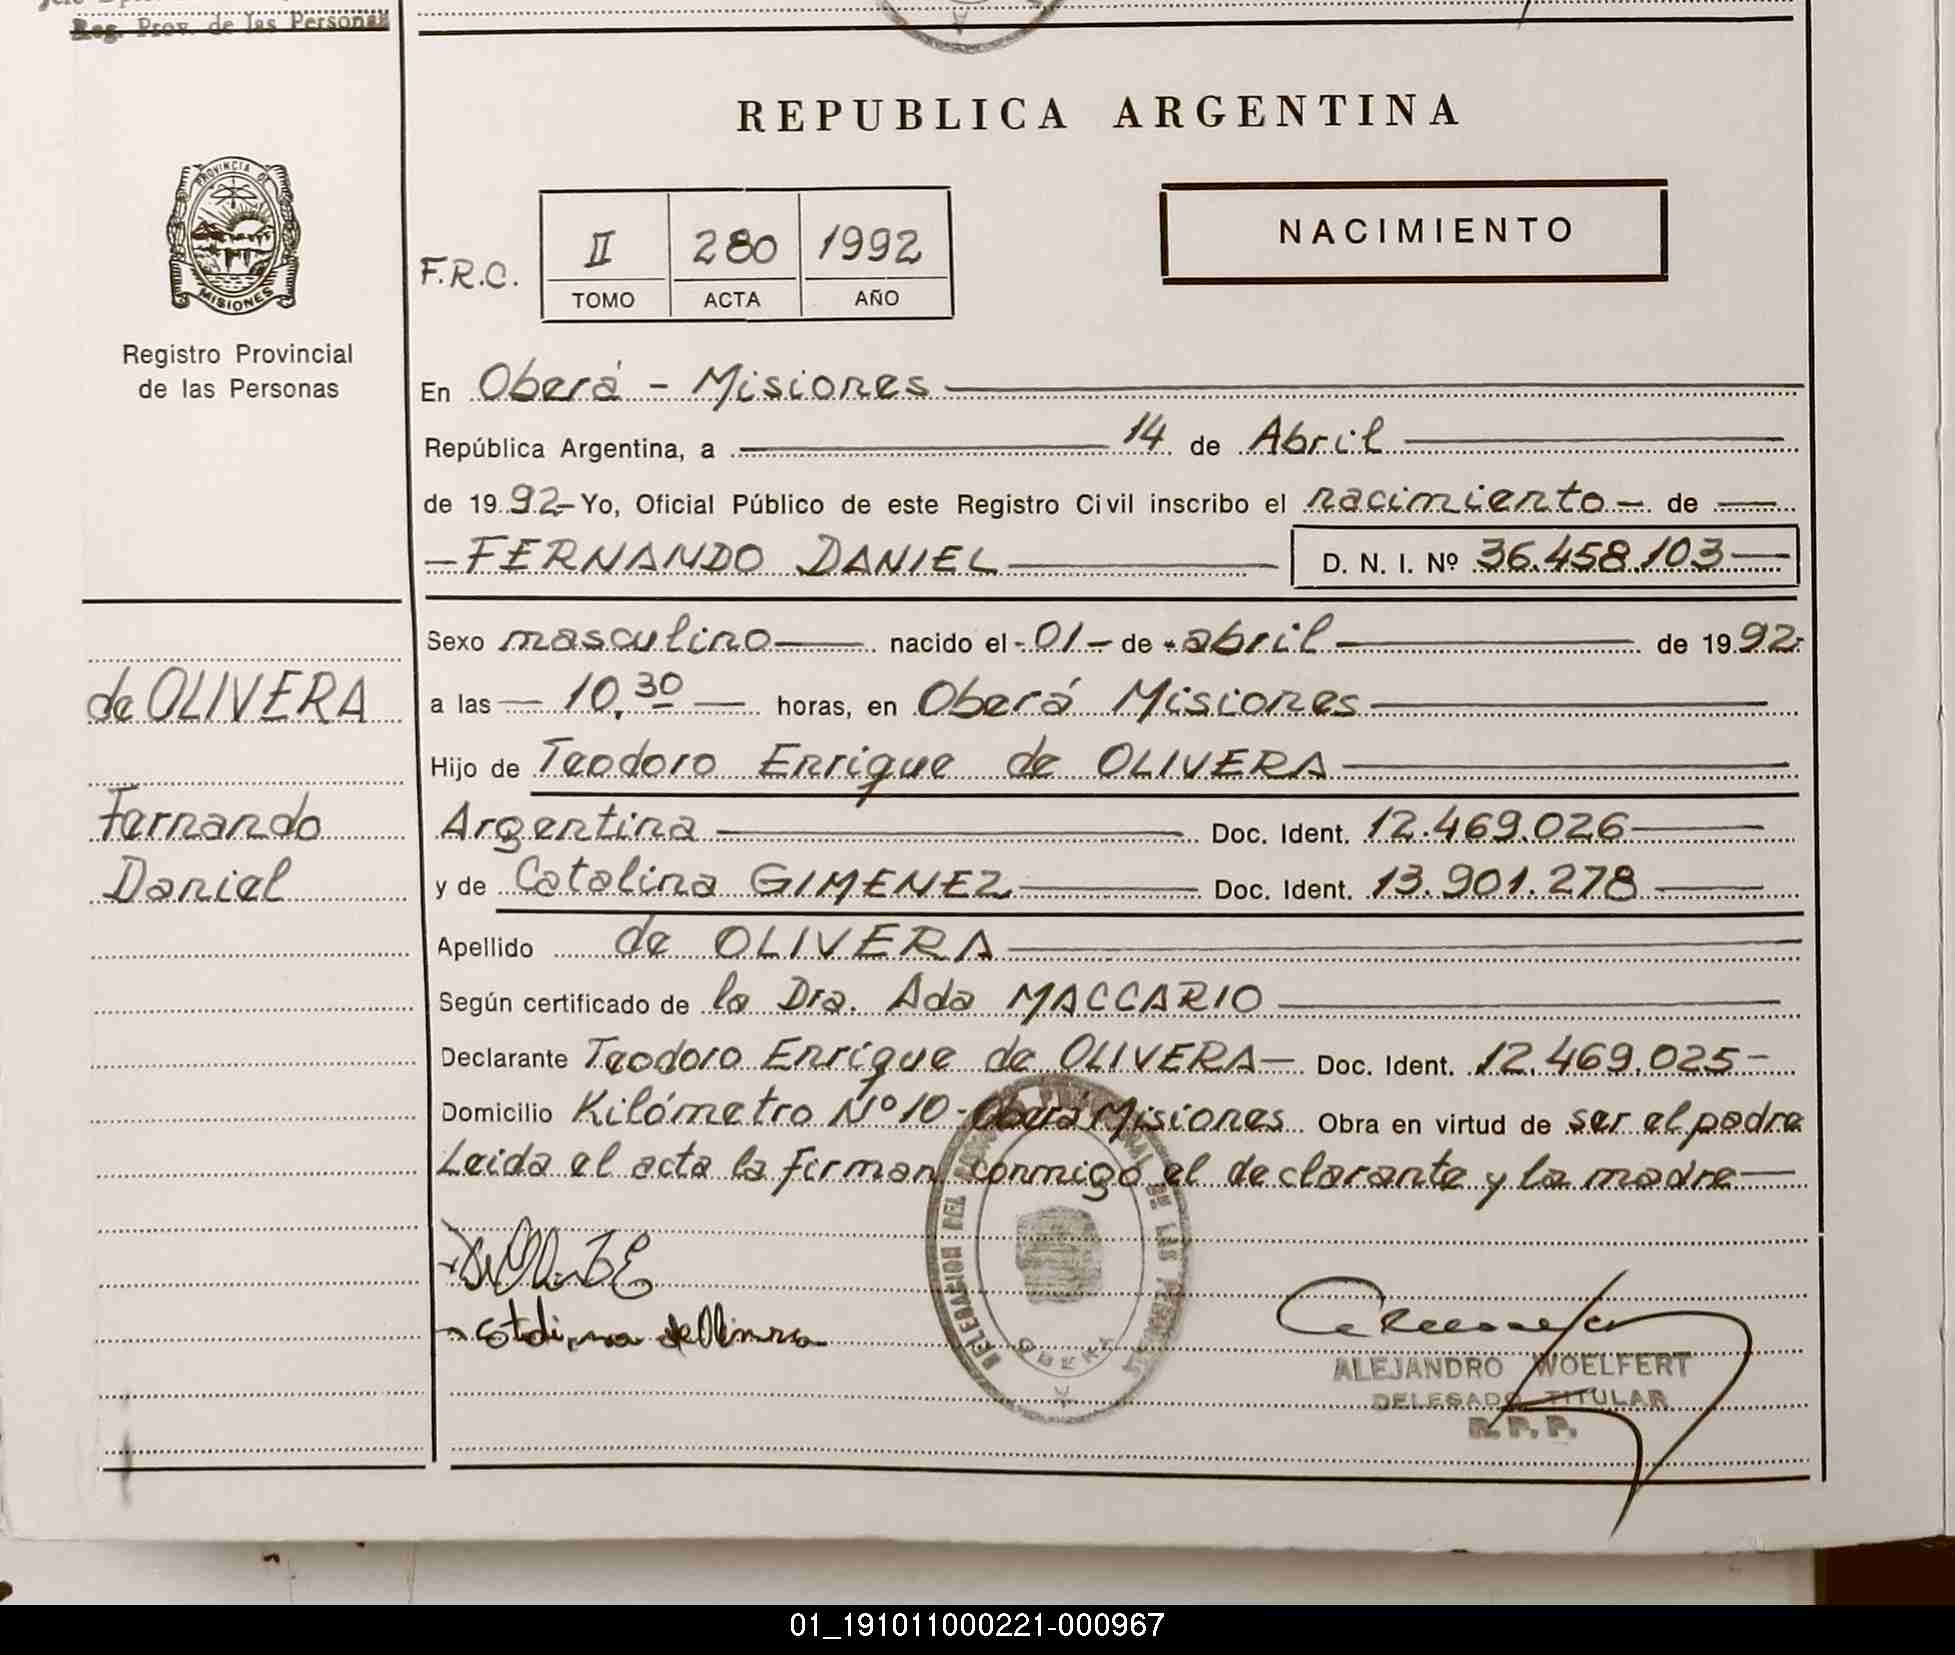 Reg. Prov. de las Personas
REPUBLICA ARGENTINA
PROVINCIA DE
MISIONES
Registro Provincial
de las Personas
F.R.C.
II 280 1992
TOMO ACTA AÑO
NACIMIENTO
En Oberá - Misiones
República Argentina, a 14 de Abril
de 1992- Yo, Oficial Público de este Registro Civil inscribo el nacimiento - de
- FERNANDO DANIEL D. N. I. Nº 36.458.103
Sexo masculino nacido el - 01 - de - abril de 1992-
de OLIVERA
a las 10,30 horas, en Oberá Misiones
Hijo de Teodoro Enrique de OLIVERA
Fernando
Argentina Doc. Ident. 12.469.026
Daniel
y de Catalina GIMENEZ Doc. Ident. 13.901.278
Apellido de OLIVERA
Según certificado de la Dra. Ada MACCARIO
Declarante Teodoro Enrique de OLIVERA - Doc. Ident. 12.469.025 -
Domicilio Kilómetro Nº 10 - Oberá Misiones Obra en virtud de ser el padre
Leida el acta la firman conmigo el declarante y la madre
DELEGACION DEL DE LAS
OBERA
ALEJANDRO WOELFERT
DELEGADO TITULAR
R. P. P.
01_191011000221-000967